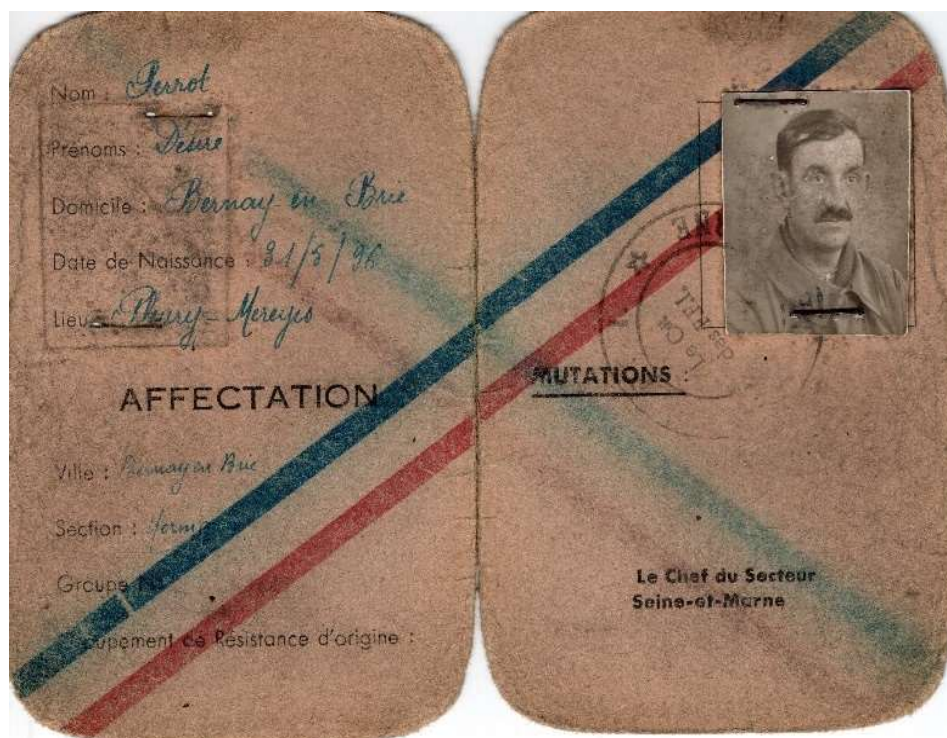 Nom : Perrot
Prénoms : Désiré
Domicile : Bernay en Brie
Date de Naissance : 31/5/96
Lieu
AFFECTATION
Ville : Bernay en Brie
Section :
Groupe
de Résistance d'origine :
MUTATIONS :
Le Chef du Secteur
Seine-et-Marne